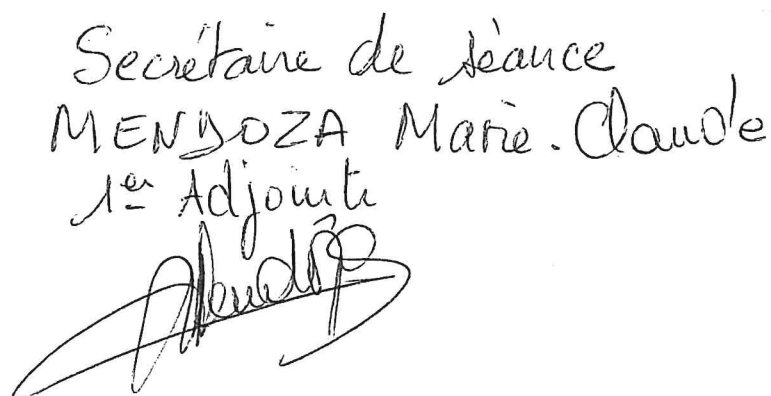 Secrétaire de séance
MENDOZA Marie-Claude
1er Adjointe
Mendoza